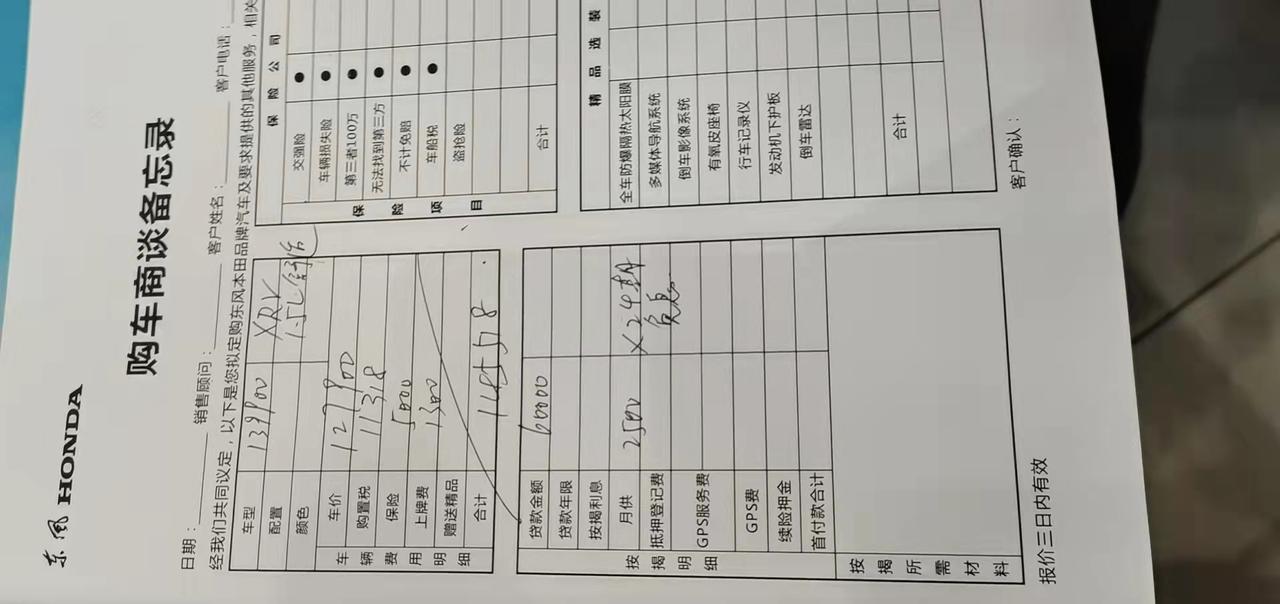 东风 HONDA
购车商谈备忘录
日期： 销售顾问： 客户姓名： 客户电话：
经我们共同议定，以下是您拟定购东风本田品牌汽车及要求提供的其他服务，相关
车型 139900 XRV
配置 1.5L
颜色
车辆费用明细
车价 127900
购置税 11318
保险 5000
上牌费 1300
赠送精品
合计 145518
保险公司
保险项目
交强险 ●
车辆损失险 ●
第三者100万 ●
无法找到第三方 ●
不计免赔 ●
车船税 ●
盗抢险
合计
按揭明细
贷款金额 60000
贷款年限
按揭利息
月供 2500 X24期
抵押登记费 免息
GPS服务费
GPS费
续险押金
首付款合计
精品选装
全车防爆隔热太阳膜
多媒体导航系统
倒车影像系统
有氧皮座椅
行车记录仪
发动机下护板
倒车雷达
合计
按揭所需材料
报价三日内有效
客户确认：